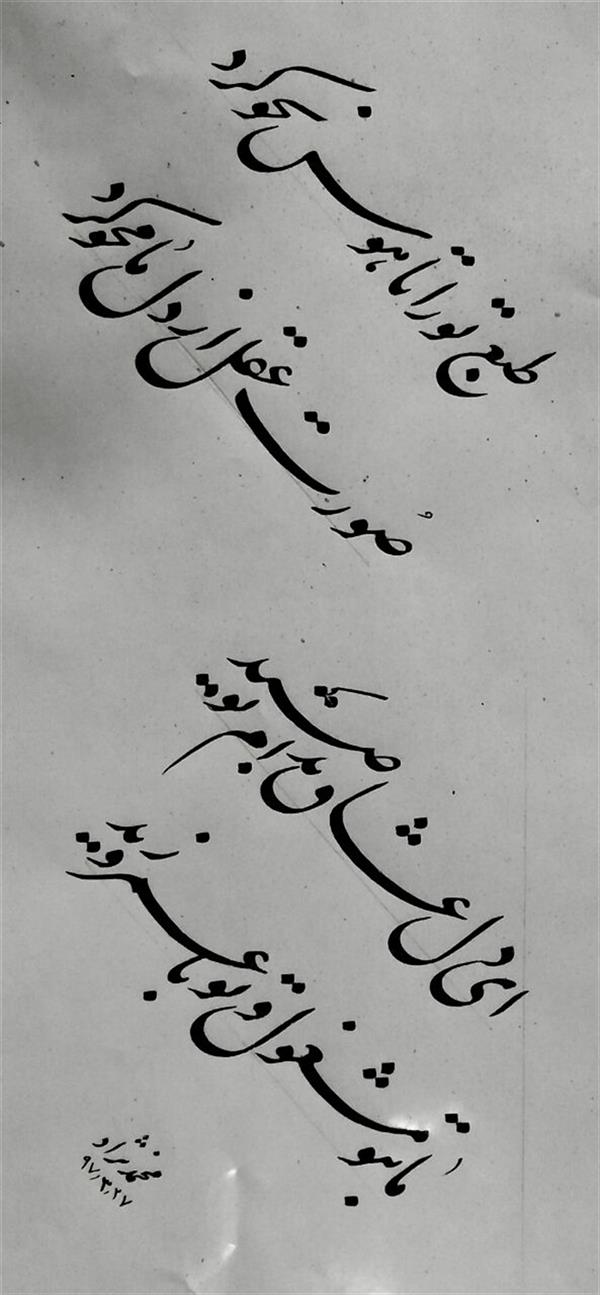 طبع تو را تا هوس نحو کرد
صورت عقل از دل ما محو کرد
ای دل عشاق بدام تو صید
ما بتو مشغول و تو با عمرو زید
محمدنژاد
۹۷٫۳٫۲۷